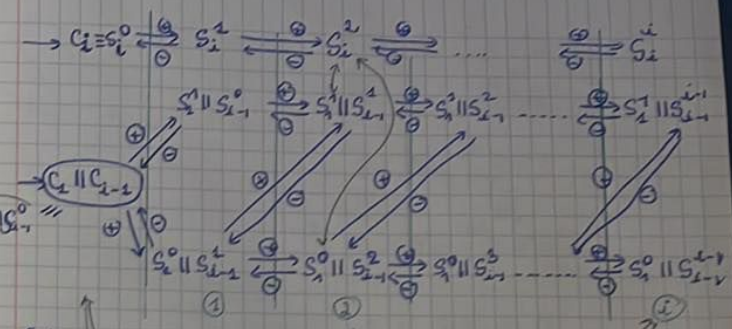 → Cᵢ ≡ Sᵢ⁰ ⊕⇌⊖ Sᵢ¹ ⇌⊖ Sᵢ² ⊕⇌⊖ .... ⊕⇌⊖ Sᵢⁱ
S₁¹ || Sᵢ₋₁⁰ ⊕⇌⊖ S₁¹ || Sᵢ₋₁¹ ⊕⇌⊖ S₁¹ || Sᵢ₋₁² ...... ⊕⇌⊖ S₁¹ || Sᵢ₋₁ⁱ⁻¹
⊕ ⊖
→ C₁ || Cᵢ₋₁ ⊕ ⊖ ⊕ ⊖ ⊕ ⊖
⊕ ⊖
S₁⁰ || Sᵢ₋₁¹ ⊕⇌⊖ S₁⁰ || Sᵢ₋₁² ⊕⇌⊖ S₁⁰ || Sᵢ₋₁³ ....... ⊕⇌⊖ S₁⁰ || Sᵢ₋₁ⁱ⁻¹
① ② ⓘ